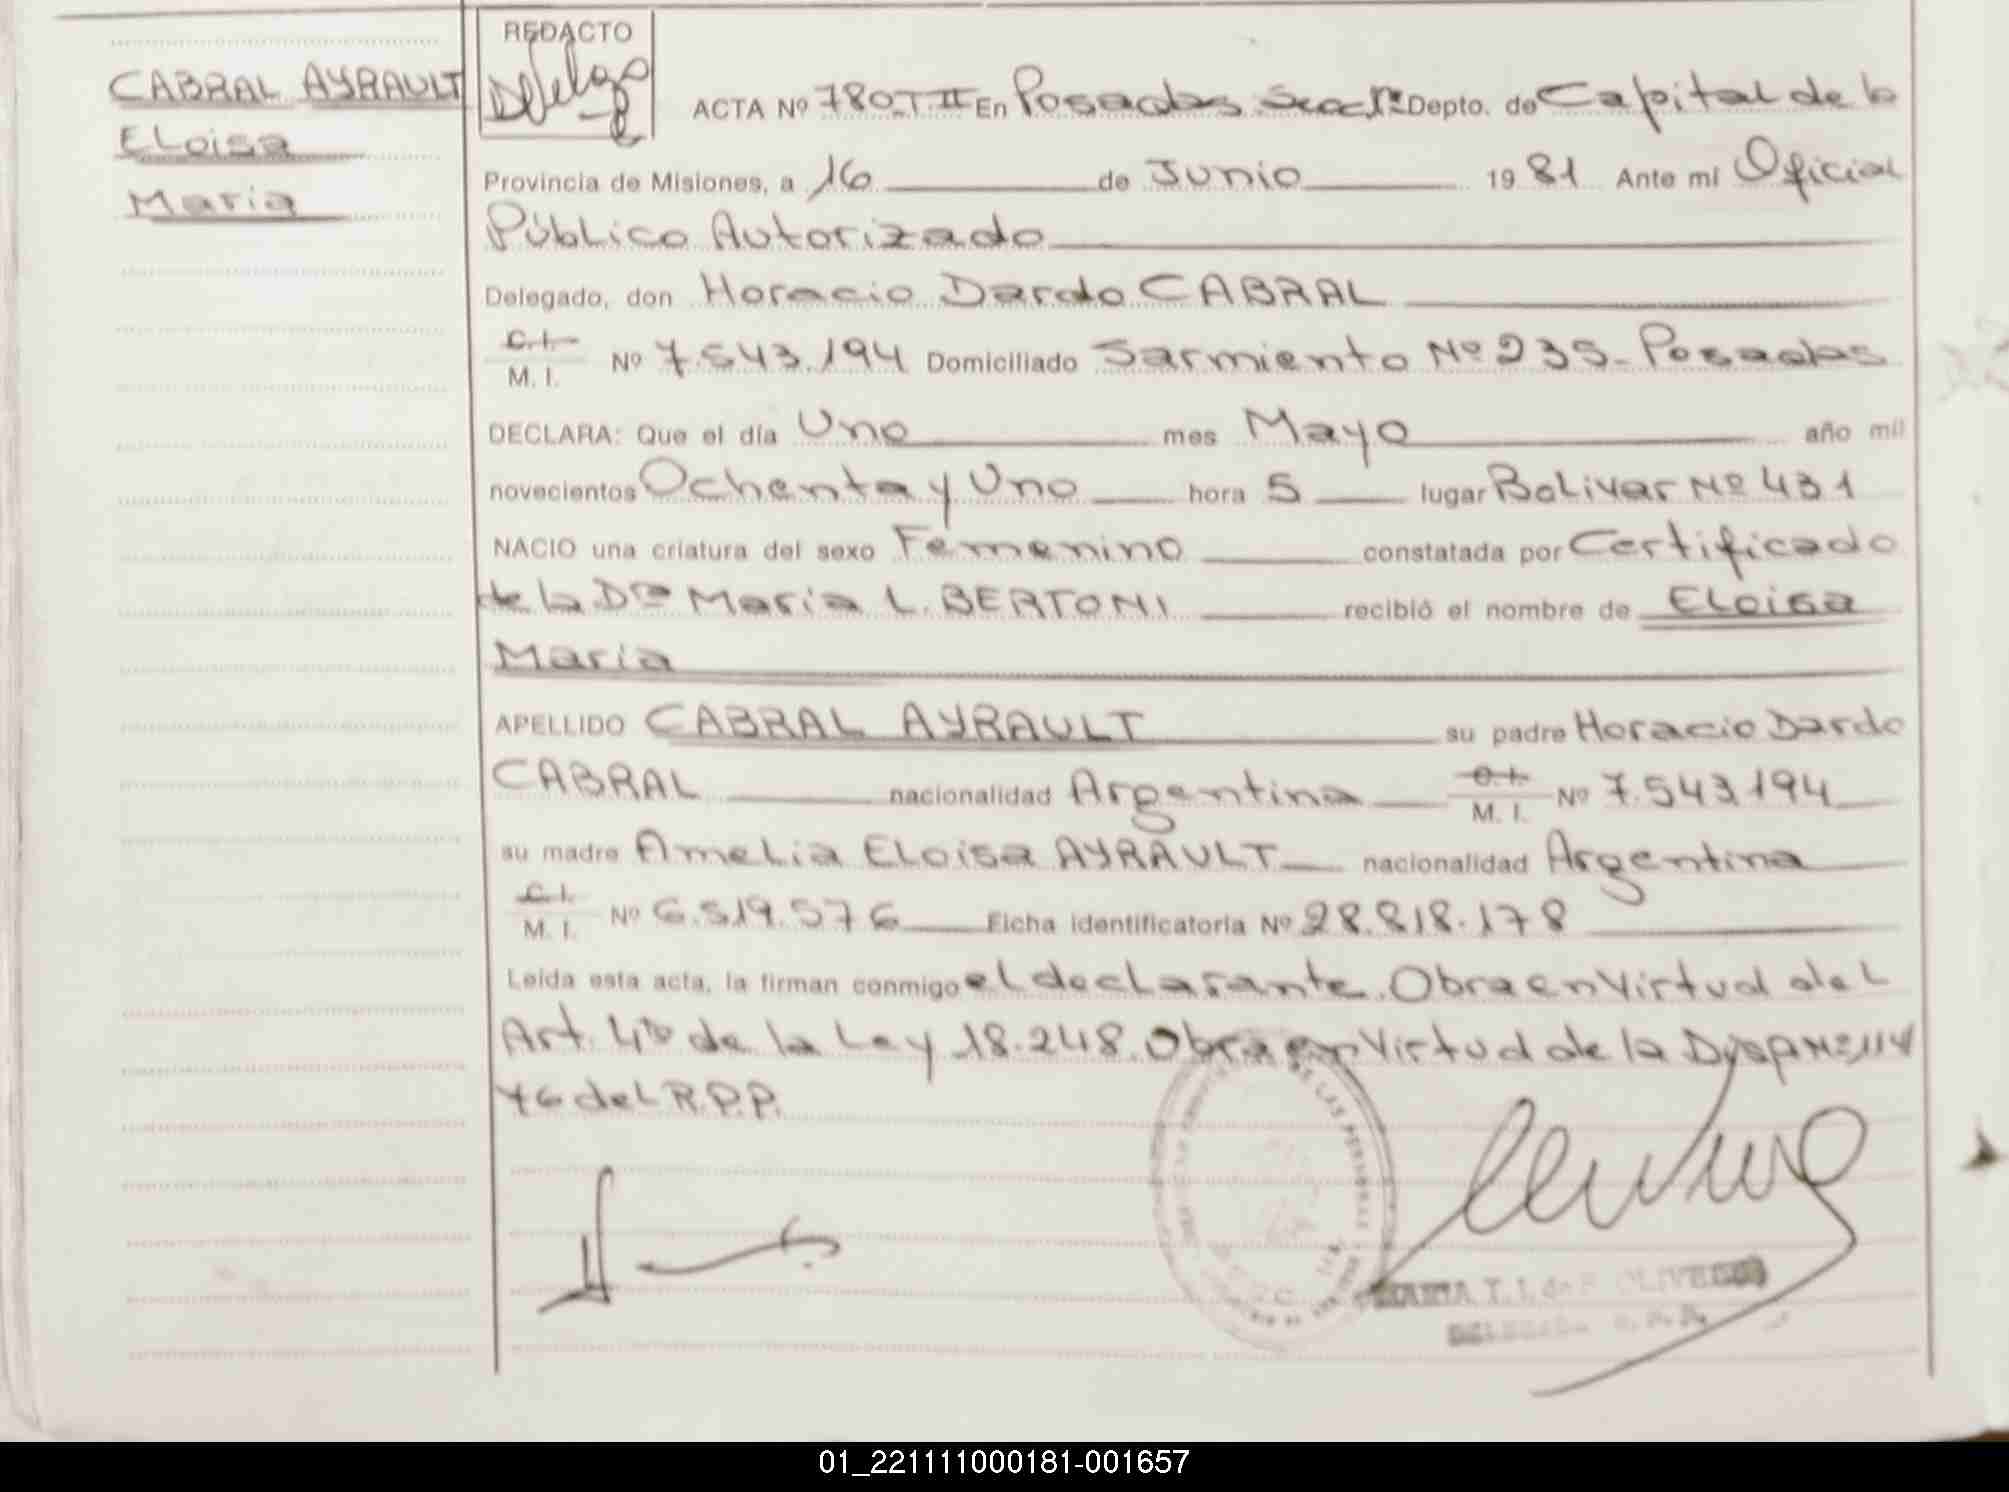 CABRAL AYRAULT
Eloisa
Maria
REDACTO
ACTA Nº 780.T.II En Posadas Secc 1ª Depto. de Capital de la
Provincia de Misiones, a 16 de Junio 1981 Ante mi Oficial
Público Autorizado
Delegado, don Horacio Dardo CABRAL
C.I. M. I. Nº 7.543.194 Domiciliado Sarmiento Nº 235- Posadas
DECLARA: Que el día Uno mes Mayo año mil
novecientos Ochenta y Uno hora 5 lugar Bolivar Nº 431
NACIO una criatura del sexo Femenino constatada por Certificado
de la Dra Maria L. BERTONI recibió el nombre de Eloisa
Maria
APELLIDO CABRAL AYRAULT su padre Horacio Dardo
CABRAL nacionalidad Argentina C.I. M. I. Nº 7.543.194
su madre Amelia Eloisa AYRAULT nacionalidad Argentina
C.I. M. I. Nº 6.519.576 Ficha identificatoria Nº 28.818.178
Leída esta acta, la firman conmigo el declarante. Obra en Virtud del
Art. 4to de la Ley 18.248. Obra en Virtud de la
del R.P.P.
DE LAS PERSONAS
01_221111000181-001657